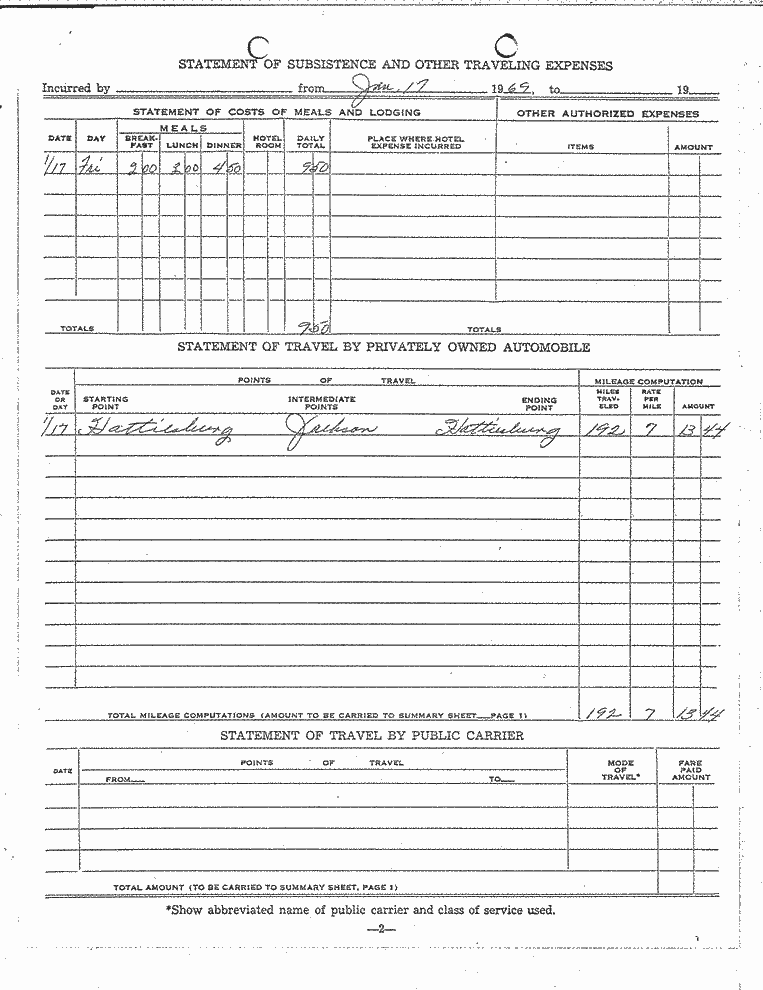 STATEMENT OF SUBSISTENCE AND OTHER TRAVELING EXPENSES
Incurred by from Jan. 17 1969, to 19
STATEMENT OF COSTS OF MEALS AND LODGING OTHER AUTHORIZED EXPENSES
MEALS
DATE DAY BREAK-FAST LUNCH DINNER HOTEL ROOM DAILY TOTAL PLACE WHERE HOTEL EXPENSE INCURRED ITEMS AMOUNT
1/17 Fri 2 00 3 00 4 50 9 50
TOTALS 9 50 TOTALS
STATEMENT OF TRAVEL BY PRIVATELY OWNED AUTOMOBILE
POINTS OF TRAVEL MILEAGE COMPUTATION
DATE OR DAY STARTING POINT INTERMEDIATE POINTS ENDING POINT MILES TRAV-ELED RATE PER MILE AMOUNT
1/17 Hattiesburg Jackson Hattiesburg 192 7 13 44
TOTAL MILEAGE COMPUTATIONS (AMOUNT TO BE CARRIED TO SUMMARY SHEET—PAGE 1) 192 7 13 44
STATEMENT OF TRAVEL BY PUBLIC CARRIER
DATE POINTS OF TRAVEL MODE OF TRAVEL* FARE PAID AMOUNT
FROM— TO—
TOTAL AMOUNT (TO BE CARRIED TO SUMMARY SHEET, PAGE 1)
*Show abbreviated name of public carrier and class of service used.
—2—